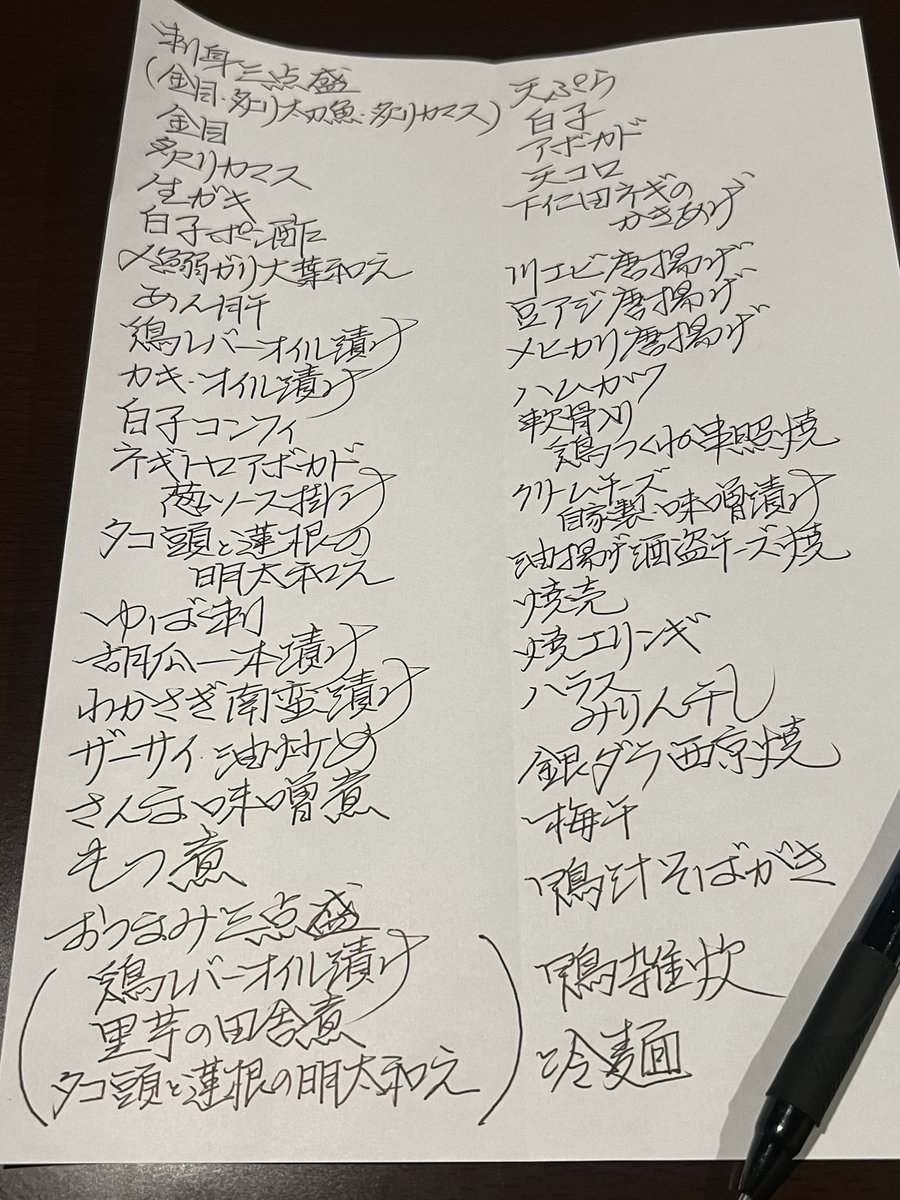 刺身三点盛
(金目・炙り太刀魚・炙りカマス)
金目
炙りカマス
生ガキ
白子ポン酢
〆鰯ガリ大葉和え
あん肝
鶏レバーオイル漬け
カキ・オイル漬け
白子コンフィ
ネギトロアボカド
葱ソース掛け
タコ頭と蓮根の
明太和え
ゆば刺
胡瓜一本漬け
わかさぎ南蛮漬け
ザーサイ油炒め
さんま味噌煮
もつ煮
おつまみ三点盛
(鶏レバーオイル漬け
里芋の田舎煮
タコ頭と蓮根の明太和え)
天ぷら
白子
アボカド
天コロ
下仁田ネギの
かきあげ
川エビ唐揚げ
豆アジ唐揚げ
メヒカリ唐揚げ
ハムカツ
軟骨入り
鶏つくね串照焼
クリームチーズ
自家製味噌漬け
油揚げ酒盗チーズ焼
焼売
焼エリンギ
ハラス
みりん干し
銀ダラ西京焼
梅干
鴨汁そばがき
鴨雑炊
冷麺